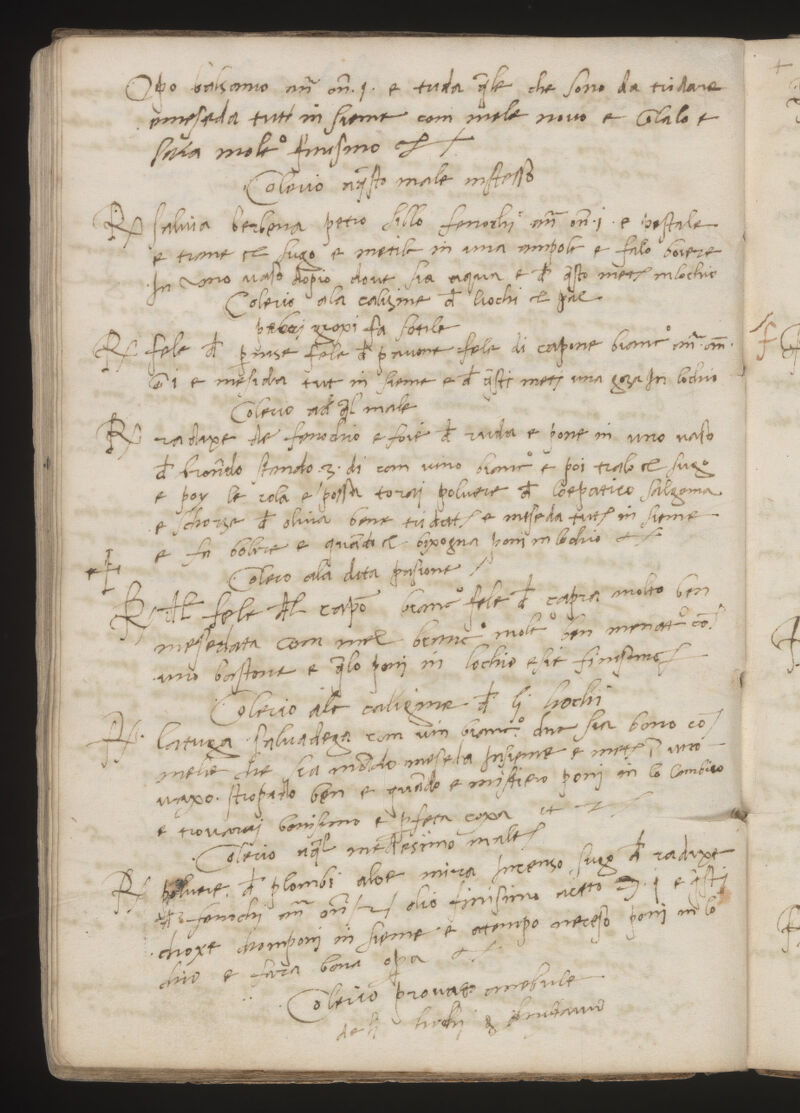 Opo balsamo an on .i. e tuda qle che sono da tridare
e meseda tuti in sieme com mele novo e colalo e
sara molto finisimo
Colerio a questo male instesso
Rx salvia berbena petro sillo fenochij an on .i. e pestale
e trane el sugo e metile in una ampola e falo bolere
In uno vaso dopio dove sia aqua e d qsto meti in lochio
Colerio ala caligine d liochi el qal
fa sotile
Rx fele d fele d pavone fele di capone bianco an on
.i. e mesida tut in sieme e d qsti meti una goza In lochio
Colerio ad ql male
Rx radixe de fenochio e foie d ruda e pone in uno vaso
d brondo stando .3. di con vino bianco e poi tralo el sugo
e poy le cola e possa torai polvere d loepatico salgema
e schorze d oliva bene tridati e meseda tuti in sieme
e fa bolere e quando el bixogna poni in lochio
Colerio ala dita pasione
Rx fele capon bianco fele d capra molto ben
mesedata com mel bianco molto ben menato co
uno bastone e qlo poni in lochio e sie finisimo
Colerio ale caligine d li liochi
Rx latuga salvadega com vin bianco che sia bono co
mele che sia mondo meseda Insieme e meti in uno
vaxo stropado ben e quando e mistiero poni in lo
e trovarai bonisimo e pfeta coxa
Colerio a ql medesimo male
Rx polvere d plombi aloe mira Incenso sugo d radixe
fenochi an on olio finisimo aceto .i. e qsti
choxe componi in sieme e atempo neceso poni in lo
chio e fara bona opa
Colerio provato a nebule
de li liochij